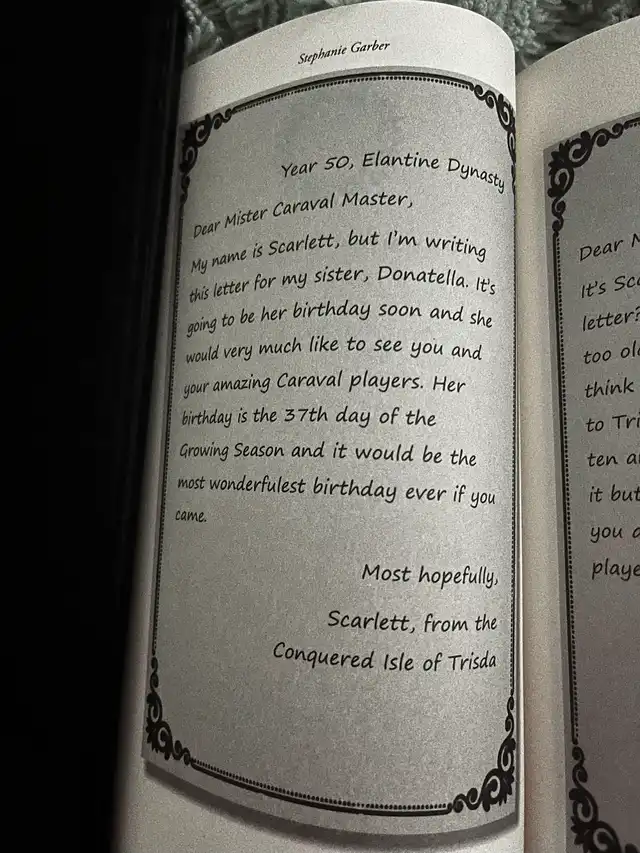 Stephanie Garber
Year 50, Elantine Dynasty
Dear Mister Caraval Master,
My name is Scarlett, but I'm writing
this letter for my sister, Donatella. It's
going to be her birthday soon and she
would very much like to see you and
your amazing Caraval players. Her
birthday is the 37th day of the
Growing Season and it would be the
most wonderfulest birthday ever if you
came.
Most hopefully,
Scarlett, from the
Conquered Isle of Trisda
Dear
It's
letter?
too
think
to
ten
it but
you